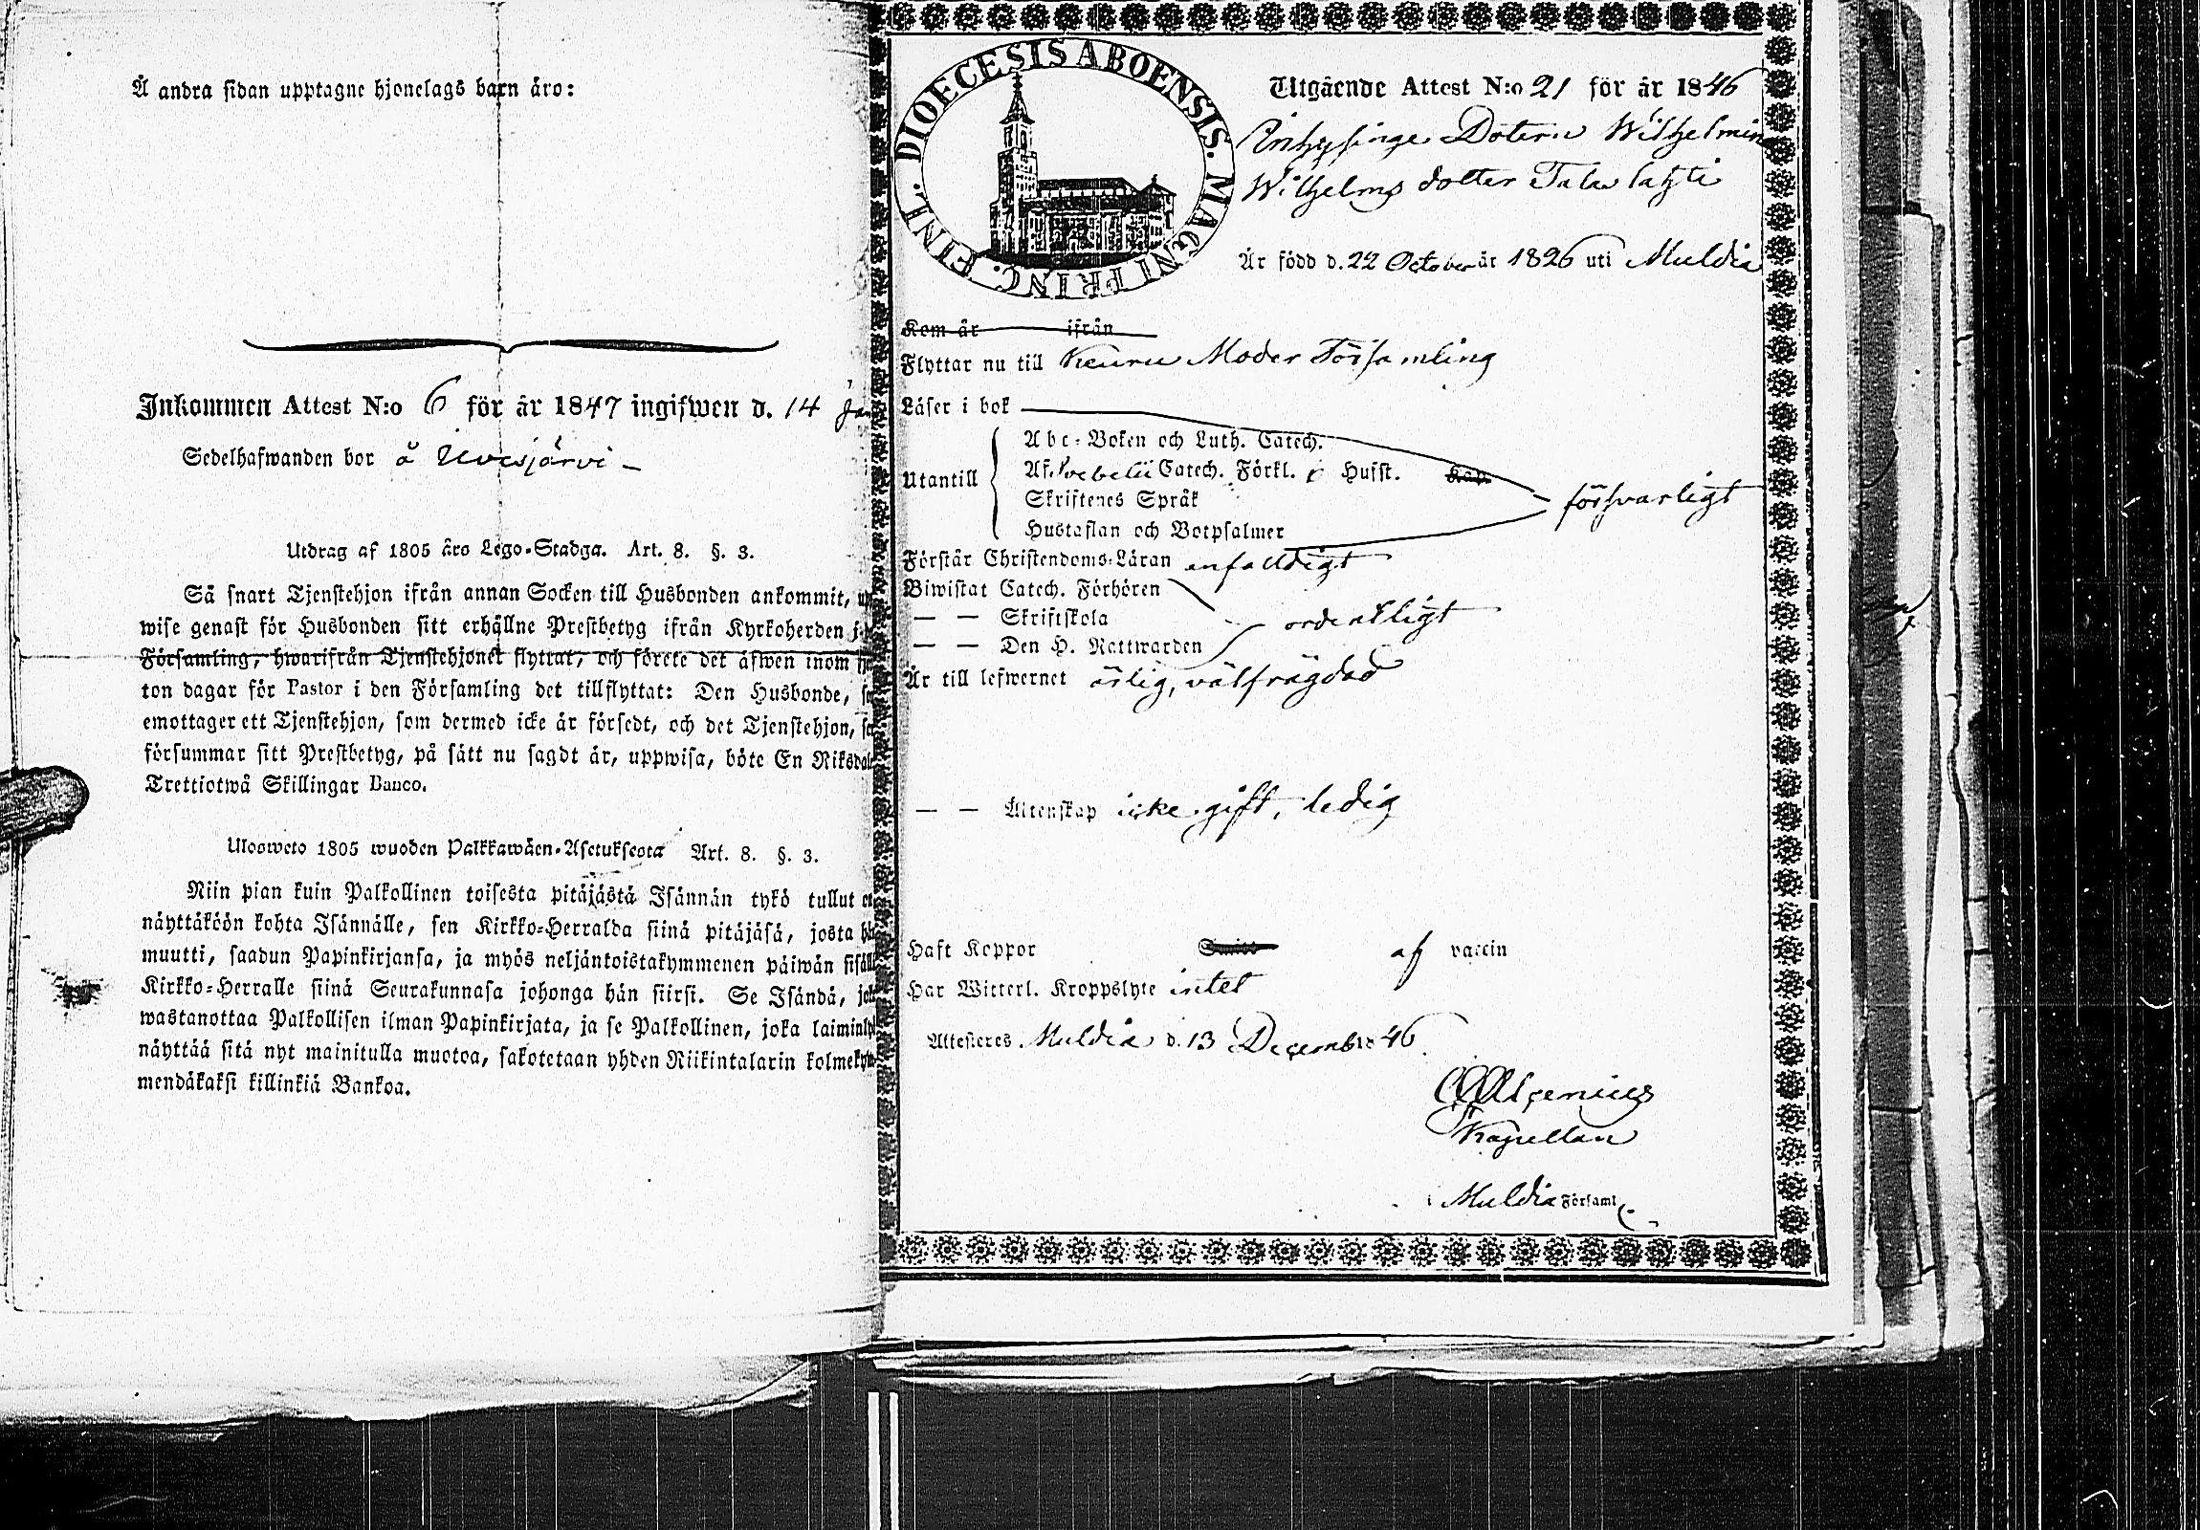 Å andra sidan upptagne hjonelags barn äro:
Inkommen Attest N:o 6 för år 1847 ingifwen d. 14
Sedelhafwanden bor å
Utdrag af 1805 års Lego-Stadga. Art. 8. §. 3.
Så snart Tjenstehjon ifrån annan Socken till Husbonden ankommit,
wise genast för Husbonden sitt erhållne Prestbetyg ifrån Kyrkoherden
Församling, hwarifrån Tjenstehjonet flyttat, och förete det äfwen inom
ton dagar för Pastor i den Församling det tillflyttat: Den Husbonde,
emottager ett Tjenstehjon, som dermed icke är försedt, och det Tjenstehjon,
försummar sitt Prestbetyg, på sätt nu sagdt är, uppwisa, böte En
Trettiotwå Skillingar Banco.
Ulosweto 1805 wuoden Palkkawäen-Asetuksesta Art. 8. §. 3.
Niin pian kuin Palkollinen toisesta pitäjästä Isännän tykö tullut
näyttäköön kohta Isännälle, sen Kirkko-Herralda siinä pitäjäsä, josta
muutti, saadun Papinkirjansa, ja myös neljäntoistakymmenen päiwän
Kirkko-Herralle siinä Seurakunnasa johonga hän siirsi. Se Isändä,
wastanottaa Palkollisen ilman Papinkirjata, ja se Palkollinen, joka
näyttää sitä nyt mainitulla muotoa, sakotetaan yhden Riikintalarin
mendäkaksi killinkiä Bankoa.
DIOECESIS ABOENSIS. MAGNI PRINC. FINL.
Utgående Attest N:o 21 för år 1846
Inhysinge Dotern Wilhelmina
Wilhelms dotter
Är född d. 22 October år 1826 uti Muldia
Kom år ifrån
Flyttar nu till Keuru Moder Församling
Läser i bok
Utantill
Abc-Boken och Luth. Catech.
Af Svebelii Catech. Förkl. Husst. Kap.
Skriftenes Språk
Hustaflan och Botpsalmer
försvarligt
Förstår Christendoms-Läran enfalldigt
Biwistat Catech. Förhören
— — Skriftskola
— — Den H. Nattwarden
ordentligt
Är till lefwernet ärlig, välfrägdad
— — Äktenskap icke gift, ledig
Haft Koppor af vaccin
Har Witterl. Kroppslyte intet
Attesteres Muldia d. 13 December 1846
Kapellan
i Muldia Församl.